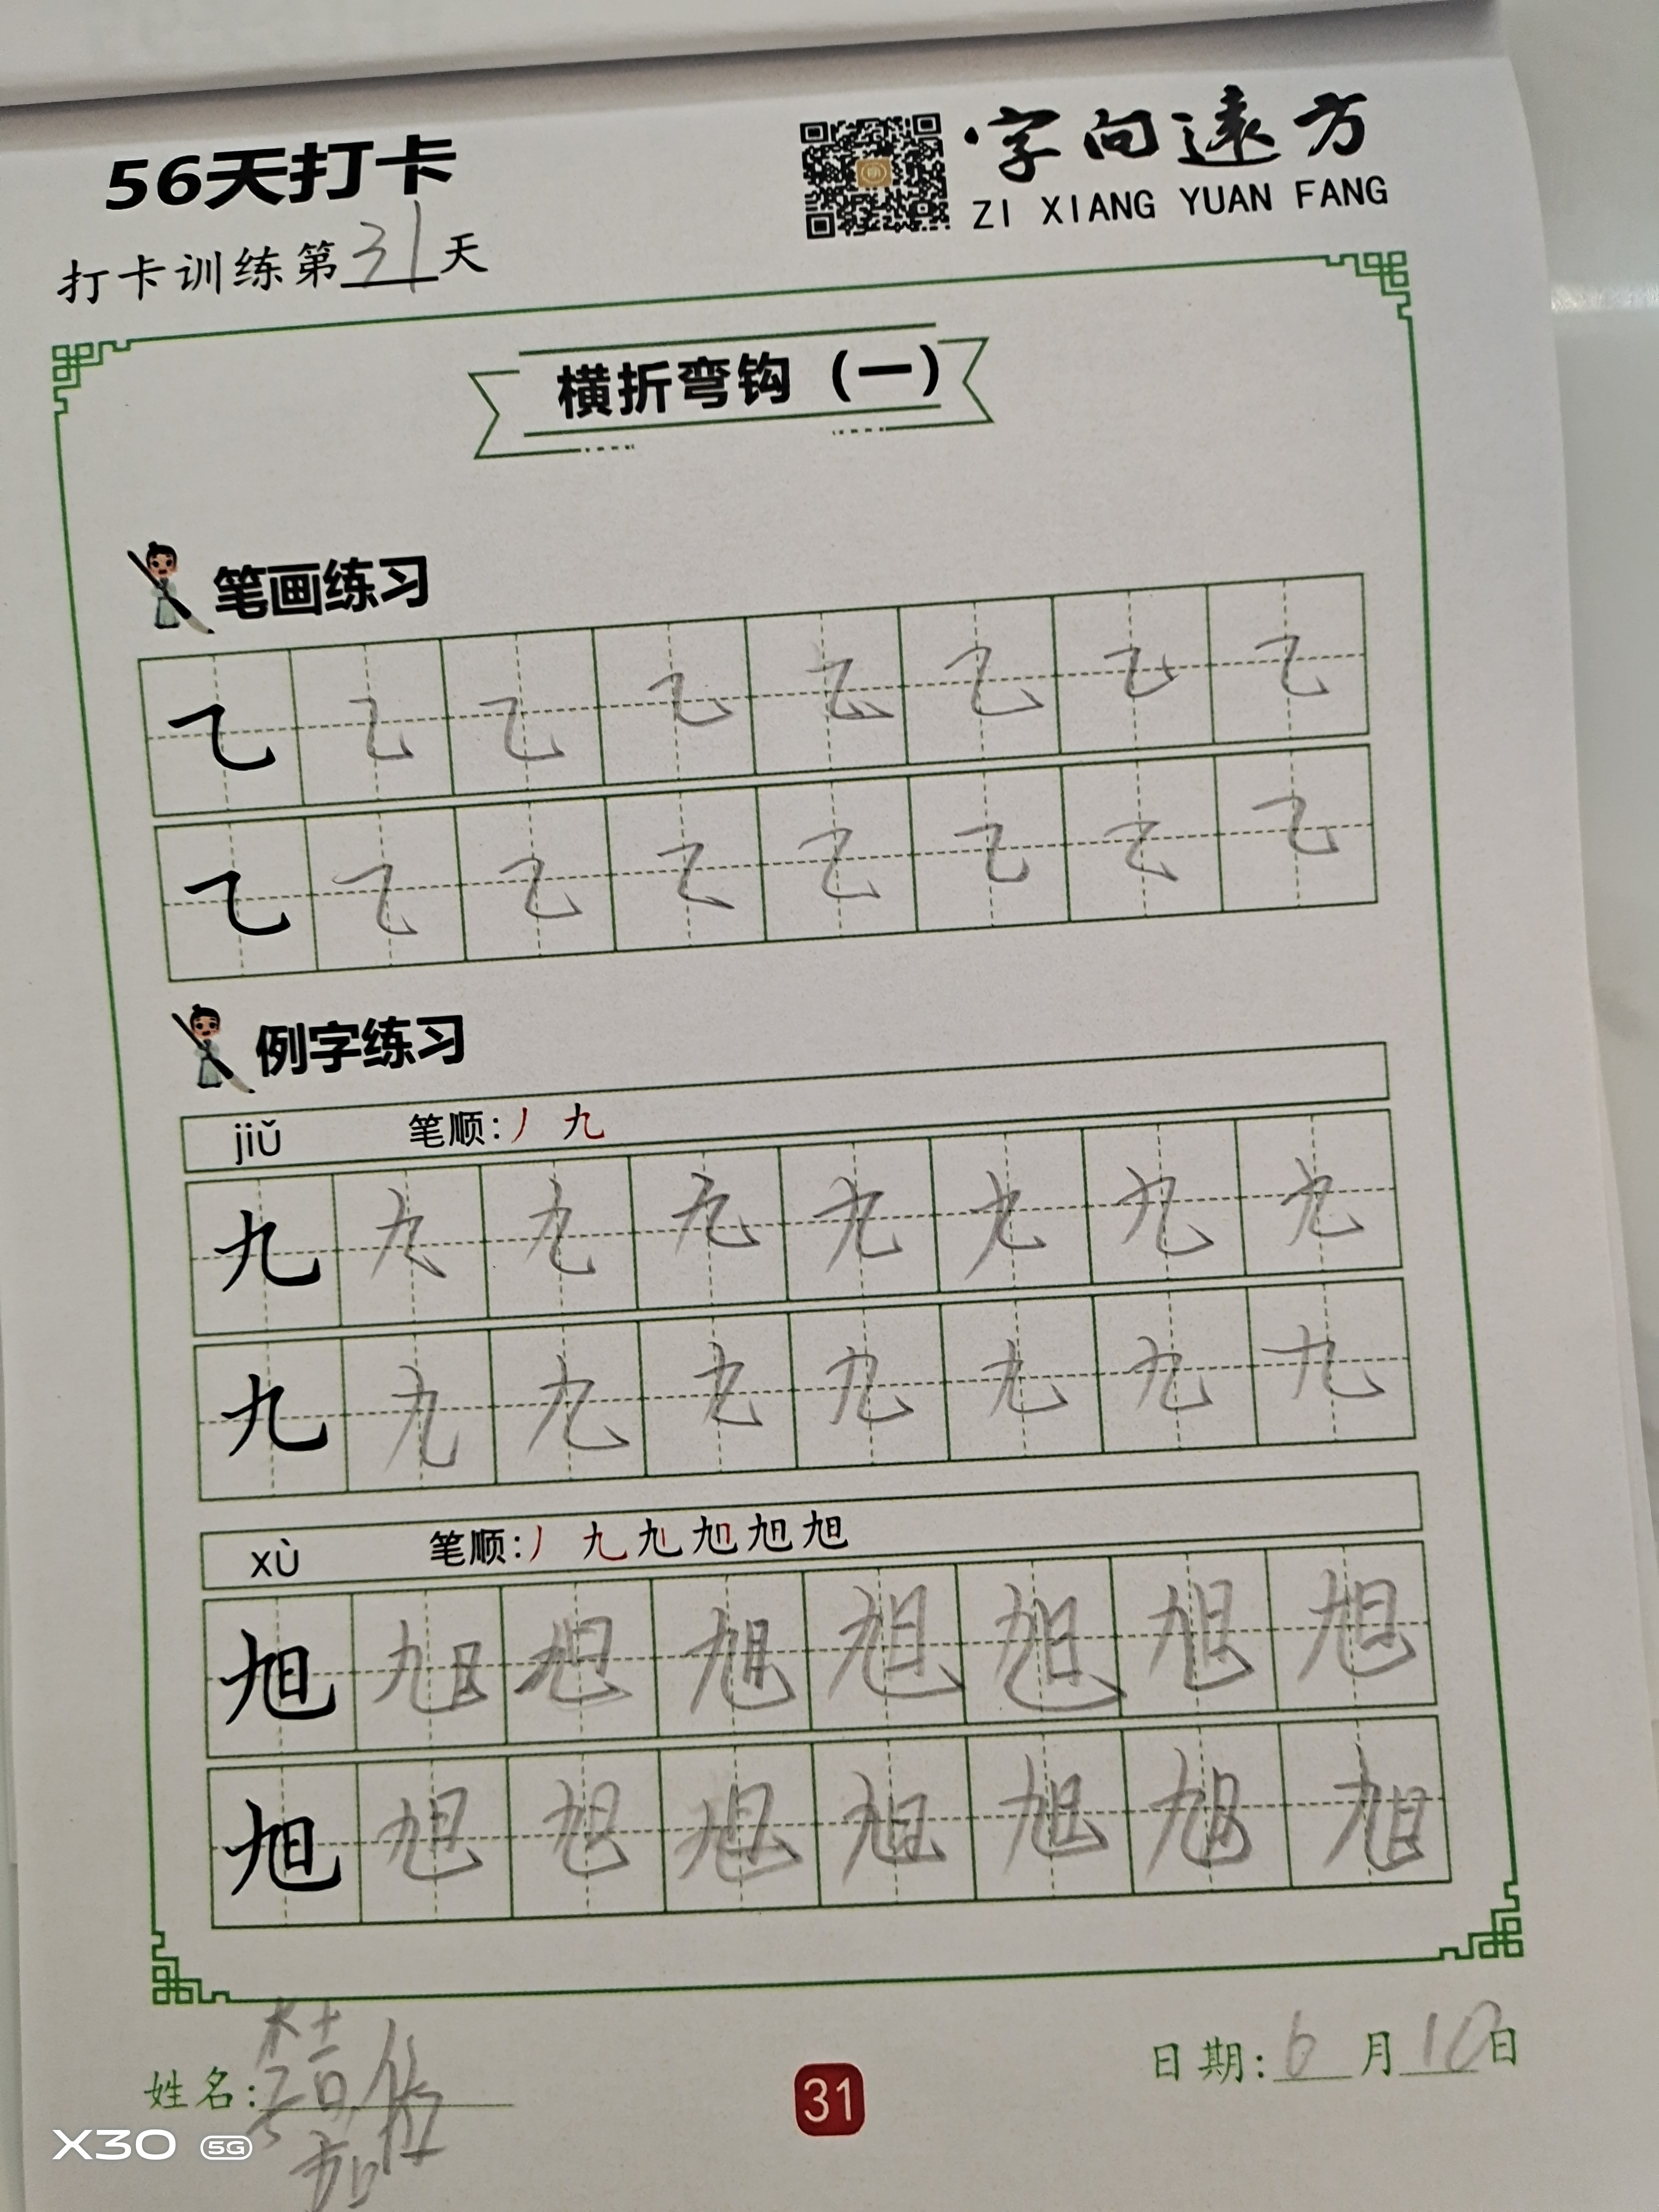 56天打卡
字向遠方
ZI XIANG YUAN FANG
打卡训练第31天
横折弯钩（一）
笔画练习
㇈ ㇈ ㇈ ㇈ ㇈ ㇈ ㇈ ㇈
㇈ ㇈ ㇈ ㇈ ㇈ ㇈ ㇈ ㇈
例字练习
jiǔ 笔顺：丿 九
九 九 九 九 九 九 九 九
九 九 九 九 九 九 九 九
xù 笔顺：丿 九 旭 旭 旭 旭
旭 旭 旭 旭 旭 旭 旭 旭
旭 旭 旭 旭 旭 旭 旭 旭
姓名：
日期：6月10日
31
X30 5G